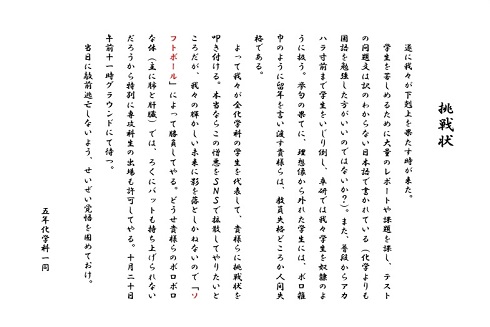 挑戦状
遂に我々が下剋上を果たす時が来た。
学生を苦しめるために大量のレポートや課題を課し、テスト
の問題文は訳のわからない日本語で書かれている（化学よりも
国語を勉強した方がいいのではないか？）。また、普段からアカ
ハラ寸前まで学生をいじり倒し、卒研では我々学生を奴隷のよ
うに扱う。挙句の果てに、理想像から外れた学生には、ボロ雑
巾のように留年を言い渡す貴様らは、教員失格どころか人間失
格である。
よって我々が全化学科の学生を代表して、貴様らに挑戦状を
叩き付ける。本当ならこの憎悪をSNSで拡散してやりたいと
ころだが、我々の輝かしい未来に影を落としかねないので「ソ
フトボール」によって勝負してやる。どうせ貴様らのボロボロ
な体（主に肺と肝臓）では、ろくにバットも持ち上げられない
だろうから特別に専攻科生の出場も許可してやる。十月二十日
午前十一時グラウンドにて待つ。
当日に敵前逃亡しないよう、せいぜい覚悟を固めておけ。
五年化学科一同